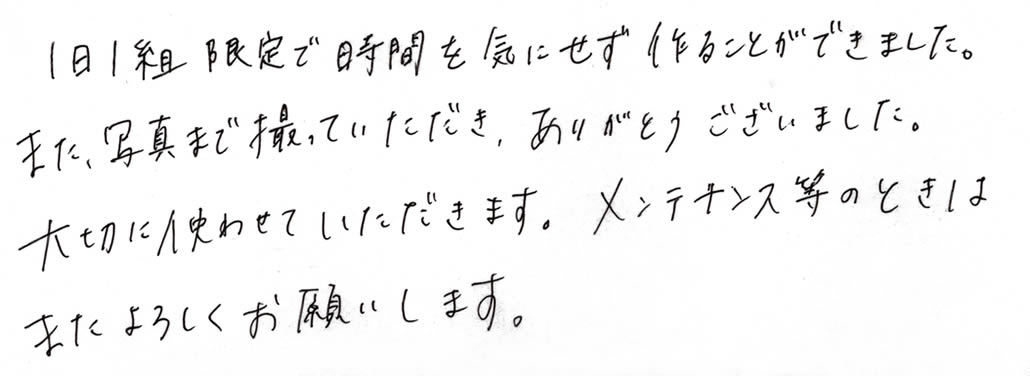 1日1組限定で時間を気にせず作ることができました。
また、写真まで撮っていただき、ありがとうございました。
大切に使わせていただきます。メンテナンス等のときは
またよろしくお願いします。